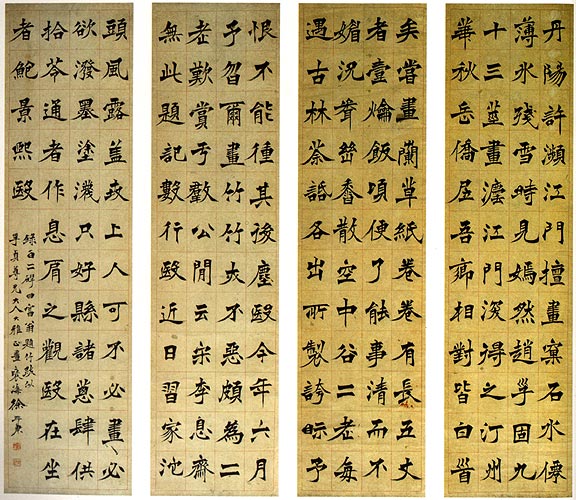 丹陽許瀕江門擅畫窠石水僊
薄氷殘雪時見嫣然趙子固九
十三畫江門深得之汀州
華秋岳僑居吾鄉相對皆白首
矣當畫蘭草紙卷卷有長五丈
者壹爚飯頃便了能事清而不
媚況香散空中谷二老每
遇古林茶話各出所製誇眎予
恨不能種其後塵殹今年六月
予畱爾畫竹竹亦不惡頗為二
老歎賞予戲公聞云宋李息齋
無此題記數行殹近日習家沱
頭風露益峻上人可不必畫必
欲潑墨塗鴉只好縣諸蔥肆供
拾苓通者作息肩之觀殹在坐
者鮑景熙殹
錄百二硯田富翁題竹跋似
尊兄大人大雅正 徐